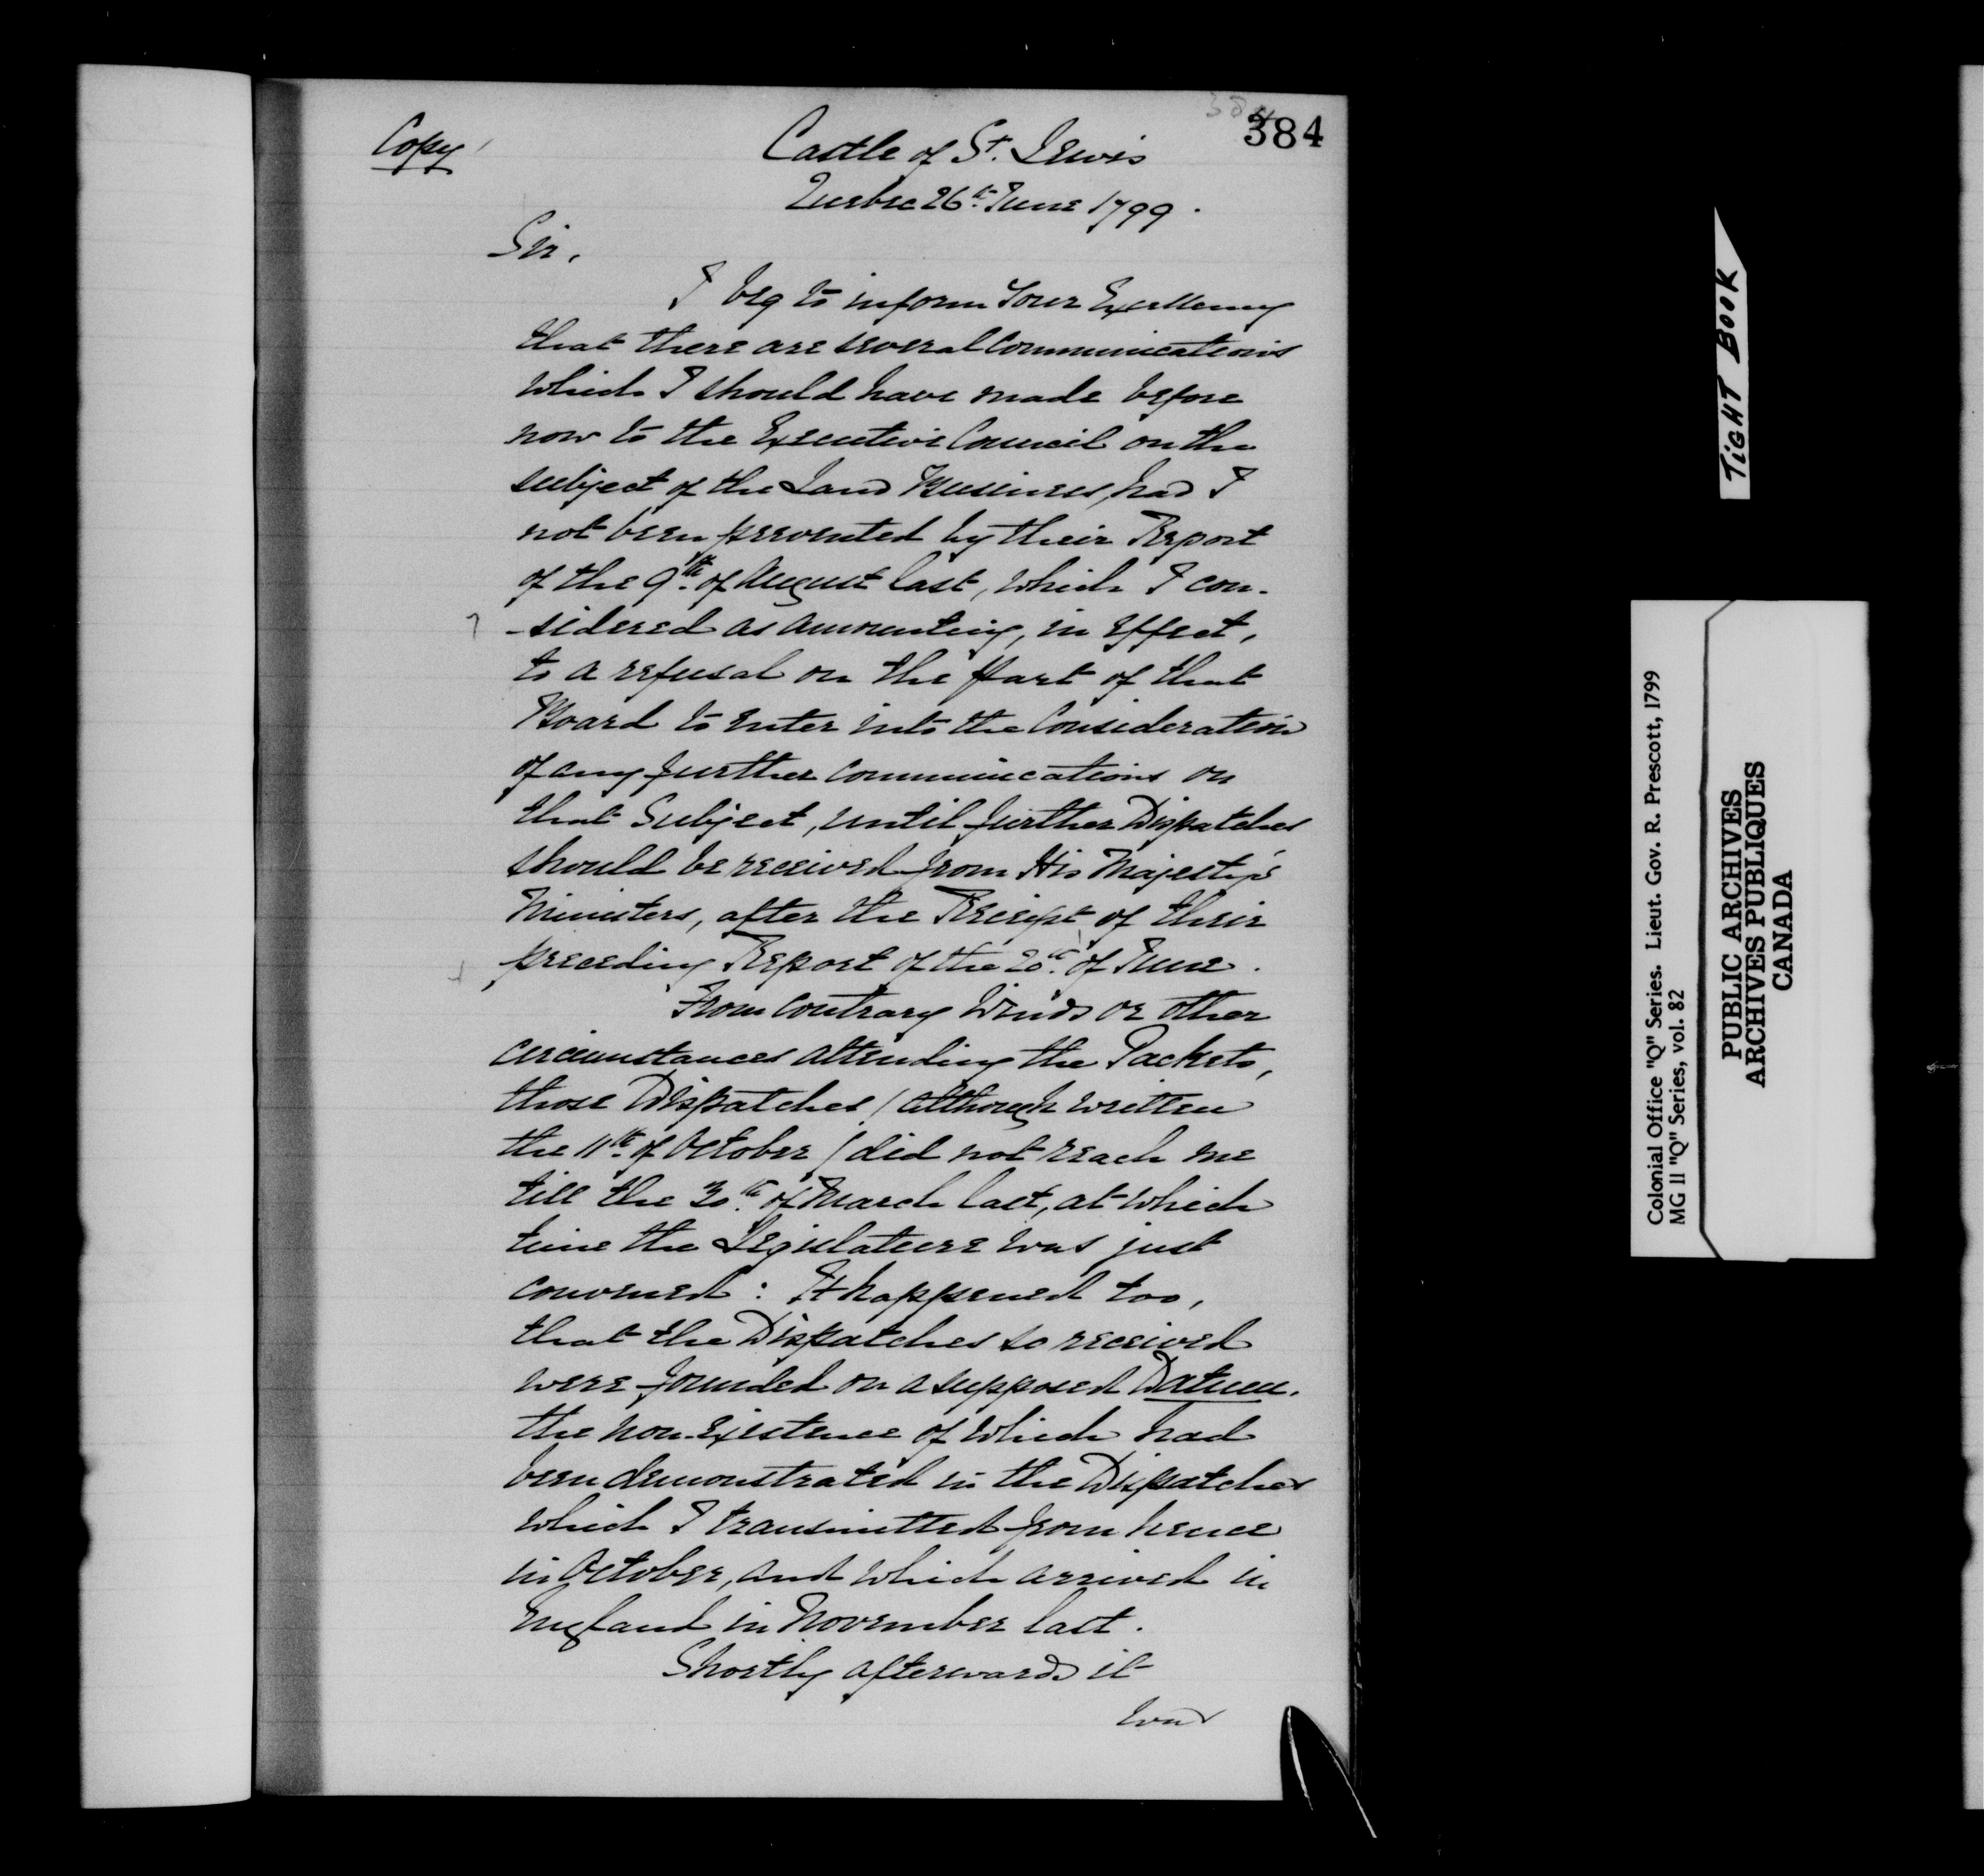 384
384
Copy
Castle of St. Lewis
Quebec 26th June 1799.
Sir,
I beg to inform Your Excellency
that there are several Communications
which I should have made before
now to the Executive Council on the
subject of the Land Business, had I
not been prevented by their Report
of the 9th of August last, which I con-
-sidered as amounting, in effect,
to a refusal on the part of that
Board to enter into the Consideration
of any further Communications on
that Subject, until further Dispatches
should be received from His Majesty's
Ministers, after the Receipt of their
preceding Report of the 20th of June.
From contrary Winds or other
circumstances attending the Packets,
those Dispatches (although written
the 11th of October) did not reach me
till the 30th of March last, at which
time the Legislature was just
convened: It happened too,
that the Dispatches so received
were founded on a supposed Datum.
the non-existence of which had
been demonstrated in the Dispatches
which I transmitted from hence
in October, and which arrived in
England in November last.
Shortly afterwards it
was
TIGHT BOOK
Colonial Office "Q" Series. Lieut. Gov. R. Prescott, 1799
MG 11 "Q" Series, vol. 82
PUBLIC ARCHIVES
ARCHIVES PUBLIQUES
CANADA